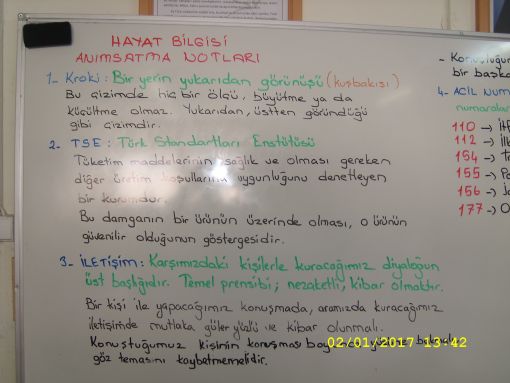 HAYAT BİLGİSİ
ANIMSATMA NOTLARI
1- Kroki: Bir yerin yukarıdan görünüşü (kuşbakışı)
Bu çizimde hiç bir ölçü, büyütme ya da
küçültme olmaz. Yukarıdan, üstten göründüğü
gibi çizimdir.
2- TSE: Türk Standartları Enstütüsü
Tüketim maddelerinin sağlık ve olması gereken
diğer üretim koşullarına uygunluğunu denetleyen
bir kurumdur.
Bu damganın bir ürünün üzerinde olması, o ürünün
güvenilir olduğunun göstergesidir.
3- İLETİŞİM: Karşımızdaki kişilerle kuracağımız diyaloğun
üst başlığıdır. Temel prensibi; nezaketli, kibar olmaktır.
Bir kişi ile yapacağımız konuşmada, aramızda kuracağımız
iletişimde mutlaka güler yüzlü ve kibar olunmalı.
Konuştuğumuz kişinin konuşması
göz temasını kaybetmemelidir.
- Konuştuğum
bir başka
4- ACİL NUM
numaralar
110 → İtf
112 → İlk
154 → T
155 → Po
156 → Ja
177 → O
02/01/2017 13:42